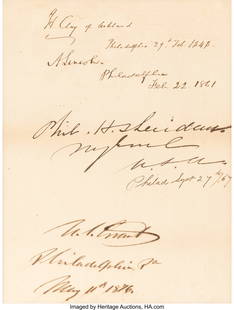 H Clay of Ashland
Philadelphia 29. Feb. 1848
A. Lincoln
Philadelphia
Feb. 22. 1861
Phil. H. Sheridan
U.S.A.
Philada Sept 27th/67
U.S. Grant
Philadelphia Pa
May 11th 1876
Imaged by Heritage Auctions, HA.com